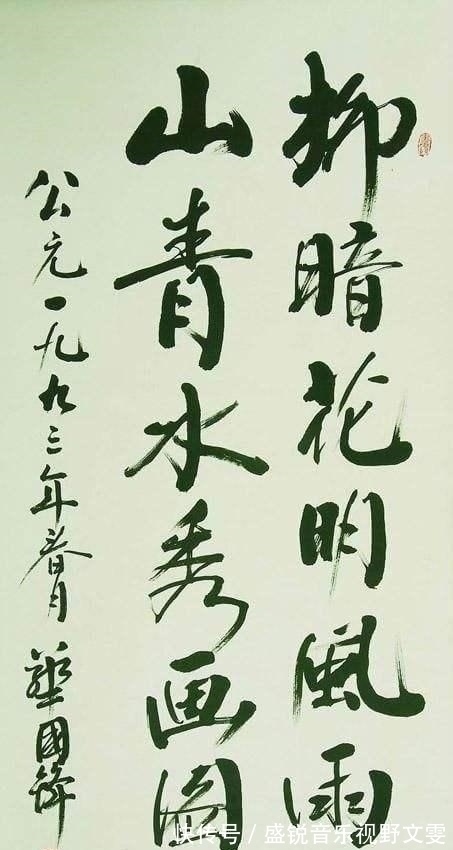 柳暗花明風雨
山青水秀画图
公元一九九三年春月 華國鋒
快传号 / 盛锐音乐视野文雯